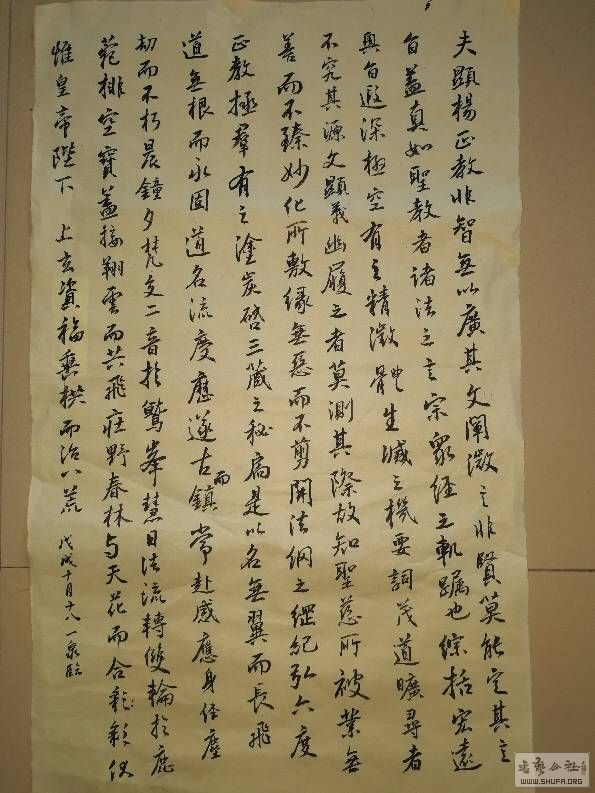 夫顯揚正教非智無以廣其文闡微言非賢莫能定其
旨蓋真如聖教者諸法之玄宗眾經之軌躅也綜括宏遠
奧旨遐深極空有之精微體生滅之機要詞茂道曠尋者
不究其源文顯義幽履之者莫測其際故知聖慈所被業無
善而不臻妙化所敷緣無惡而不剪開法網之綱紀弘六度
正教拯羣有之塗炭啓三藏之秘扃是以名無翼而長飛
道無根而永固道名流慶歷遂古而鎮常赴感應身經塵
劫而不朽晨鐘夕梵交二音於鷲峯慧日法流轉雙輪於鹿
菀排空寶蓋接翔雲而共飛莊野春林與天花而合彩彩伏
惟皇帝陛下 上玄資福垂拱而治八荒 戊戌十月十八一泉臨
WWW.SHUFA.ORG